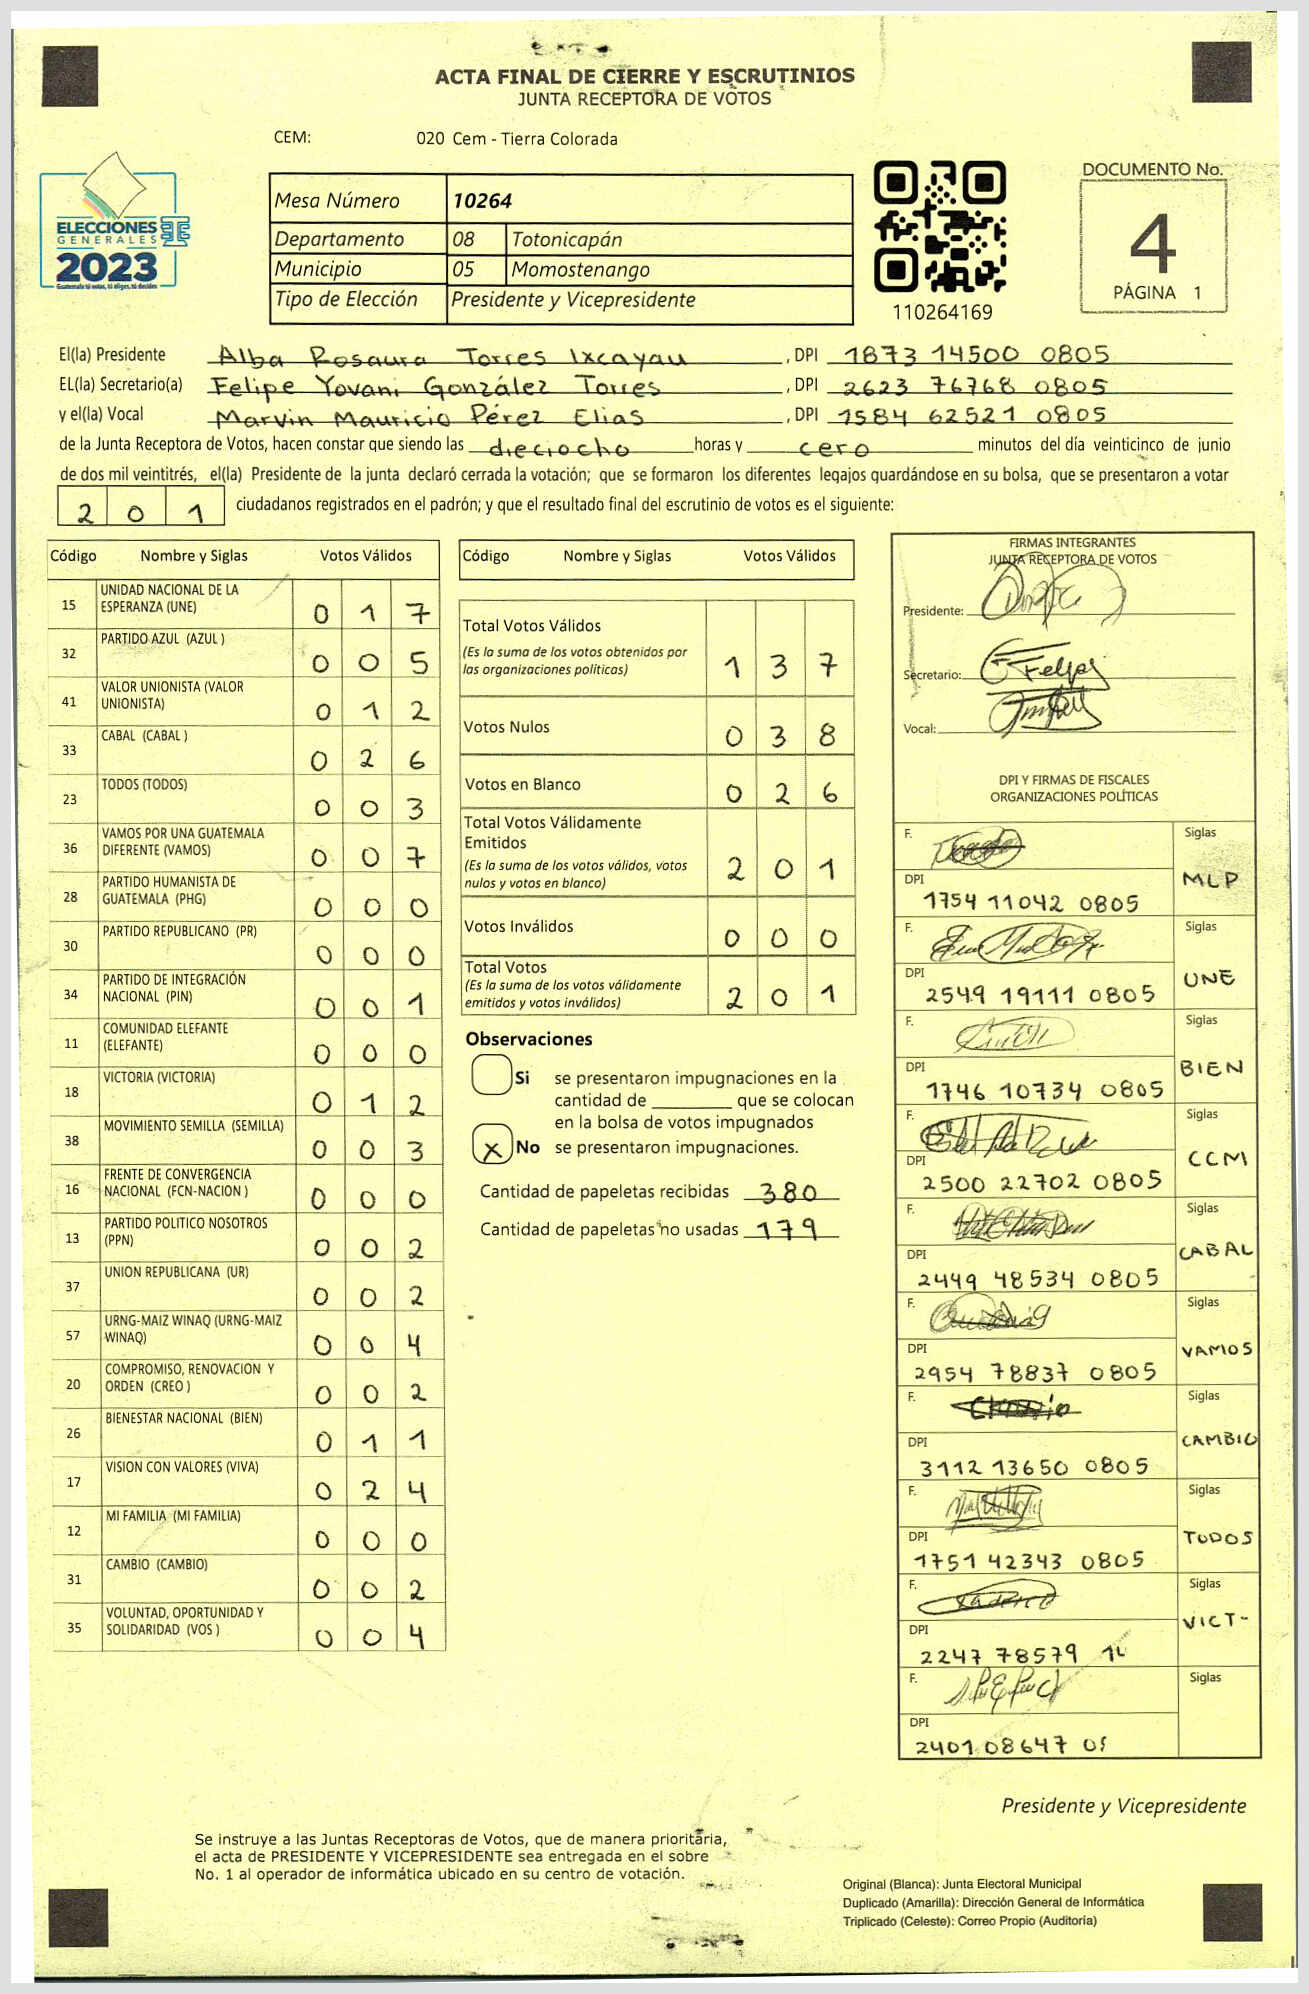 ACTA FINAL DE CIERRE Y ESCRUTINIOS
JUNTA RECEPTORA DE VOTOS
CEM: 020 Cem - Tierra Colorada
ELECCIONES
GENERALES
2023
Guatemala tú votas, tú eliges, tú decides
Mesa Número 10264
Departamento 08 Totonicapán
Municipio 05 Momostenango
Tipo de Elección Presidente y Vicepresidente
110264169
DOCUMENTO No.
4
PÁGINA 1
El(la) Presidente Alba Rosaura Torres Ixcayau, DPI 1873 14500 0805
EL(la) Secretario(a) Felipe Yovani González Torres, DPI 2623 76768 0805
y el(la) Vocal Marvin Mauricio Pérez Elias, DPI 1584 62521 0805
de la Junta Receptora de Votos, hacen constar que siendo las dieciocho horas y cero minutos del día veinticinco de junio
de dos mil veintitrés, el(la) Presidente de la junta declaró cerrada la votación; que se formaron los diferentes legajos guardándose en su bolsa, que se presentaron a votar
2 0 1 ciudadanos registrados en el padrón; y que el resultado final del escrutinio de votos es el siguiente:
Código Nombre y Siglas Votos Válidos
15 UNIDAD NACIONAL DE LA
ESPERANZA (UNE) 0 1 7
32 PARTIDO AZUL (AZUL ) 0 0 5
41 VALOR UNIONISTA (VALOR
UNIONISTA) 0 1 2
33 CABAL (CABAL ) 0 2 6
23 TODOS (TODOS) 0 0 3
36 VAMOS POR UNA GUATEMALA
DIFERENTE (VAMOS) 0 0 7
28 PARTIDO HUMANISTA DE
GUATEMALA (PHG) 0 0 0
30 PARTIDO REPUBLICANO (PR) 0 0 0
34 PARTIDO DE INTEGRACIÓN
NACIONAL (PIN) 0 0 1
11 COMUNIDAD ELEFANTE
(ELEFANTE) 0 0 0
18 VICTORIA (VICTORIA) 0 1 2
38 MOVIMIENTO SEMILLA (SEMILLA) 0 0 3
16 FRENTE DE CONVERGENCIA
NACIONAL (FCN-NACION ) 0 0 0
13 PARTIDO POLITICO NOSOTROS
(PPN) 0 0 2
37 UNION REPUBLICANA (UR) 0 0 2
57 URNG-MAIZ WINAQ (URNG-MAIZ
WINAQ) 0 0 4
20 COMPROMISO, RENOVACION Y
ORDEN (CREO ) 0 0 2
26 BIENESTAR NACIONAL (BIEN) 0 1 1
17 VISION CON VALORES (VIVA) 0 2 4
12 MI FAMILIA (MI FAMILIA) 0 0 0
31 CAMBIO (CAMBIO) 0 0 2
35 VOLUNTAD, OPORTUNIDAD Y
SOLIDARIDAD (VOS ) 0 0 4
Código Nombre y Siglas Votos Válidos
Total Votos Válidos
(Es la suma de los votos obtenidos por
las organizaciones políticas) 1 3 7
Votos Nulos 0 3 8
Votos en Blanco 0 2 6
Total Votos Válidamente
Emitidos
(Es la suma de los votos válidos, votos
nulos y votos en blanco) 2 0 1
Votos Inválidos 0 0 0
Total Votos
(Es la suma de los votos válidamente
emitidos y votos inválidos) 2 0 1
Observaciones
Si se presentaron impugnaciones en la
cantidad de ________ que se colocan
en la bolsa de votos impugnados
X No se presentaron impugnaciones.
Cantidad de papeletas recibidas 380
Cantidad de papeletas no usadas 179
FIRMAS INTEGRANTES
JUNTA RECEPTORA DE VOTOS
Presidente:
Secretario: Felipe
Vocal:
DPI Y FIRMAS DE FISCALES
ORGANIZACIONES POLÍTICAS
F. Siglas
MLP
DPI
1754 11042 0805
F. Siglas
UNE
DPI
2549 19111 0805
F. Siglas
BIEN
DPI
1746 10734 0805
F. Siglas
CCM
DPI
2500 22702 0805
F. Siglas
CABAL
DPI
2449 48534 0805
F. Siglas
VAMOS
DPI
2954 78837 0805
F. Siglas
CAMBIO
DPI
3112 13650 0805
F. Siglas
TODOS
DPI
1751 42343 0805
F. Siglas
VICT-
DPI
2247 78579 14
F. Siglas
DPI
2401 08647 05
Presidente y Vicepresidente
Se instruye a las Juntas Receptoras de Votos, que de manera prioritaria,
el acta de PRESIDENTE Y VICEPRESIDENTE sea entregada en el sobre
No. 1 al operador de informática ubicado en su centro de votación.
Original (Blanca): Junta Electoral Municipal
Duplicado (Amarilla): Dirección General de Informática
Triplicado (Celeste): Correo Propio (Auditoría)